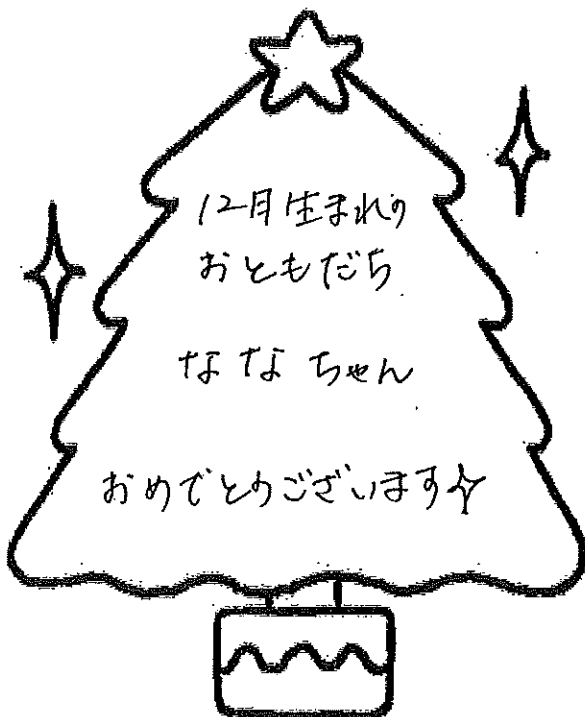 12月生まれの
おともだち
ななちゃん
おめでとうございます✧